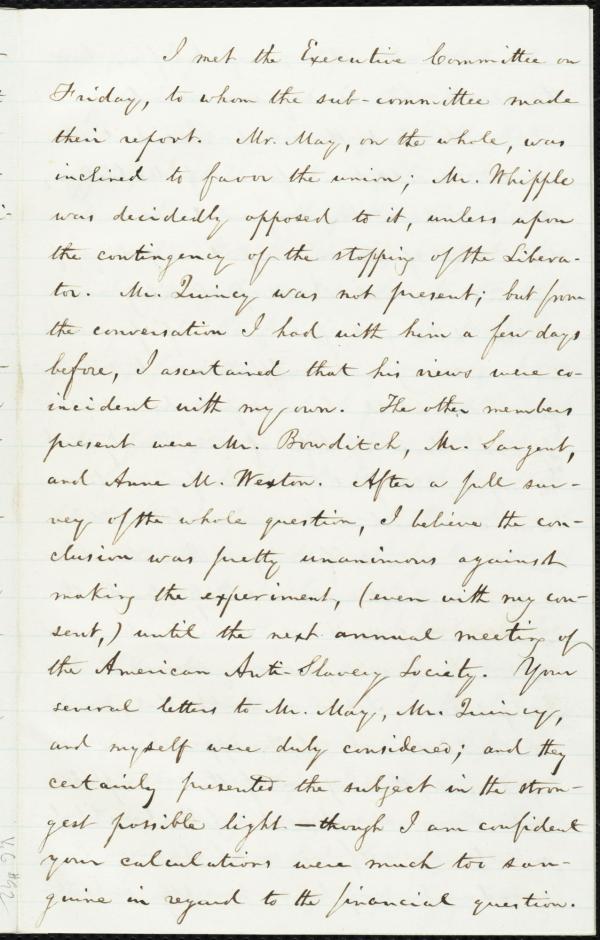 I met the Executive Committee on
Friday, to whom the sub-committee made
their report. Mr. May, on the whole, was
inclined to favor the union; Mr. Whipple
was decidedly opposed to it, unless upon
the contingency of the stopping of the Libera-
tor. Mr. Quincy was not present; but from
the conversation I had with him a few days
before, I ascertained that his views were co-
incident with my own. The other members
present were Mr. Bowditch, Mr. Sargent,
and Anne M. Weston. After a full sur-
vey of the whole question, I believe the con-
clusion was pretty unanimous against
making the experiment, (even with my con-
sent,) until the next annual meeting of
the American Anti-Slavery Society. Your
several letters to Mr. May, Mr. Quincy,
and myself were duly considered; and they
certainly presented the subject in the stron-
gest possible light — though I am confident
your calculations were much too san-
guine in regard to the financial question.